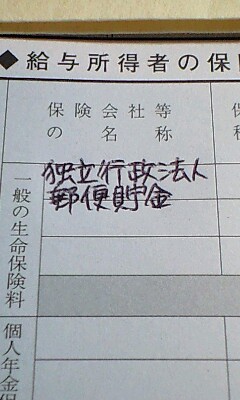 ◆給与所得者の保
保険会社等
の名称
独立行政法人
郵便貯金
一般の生命保険料
個人年金